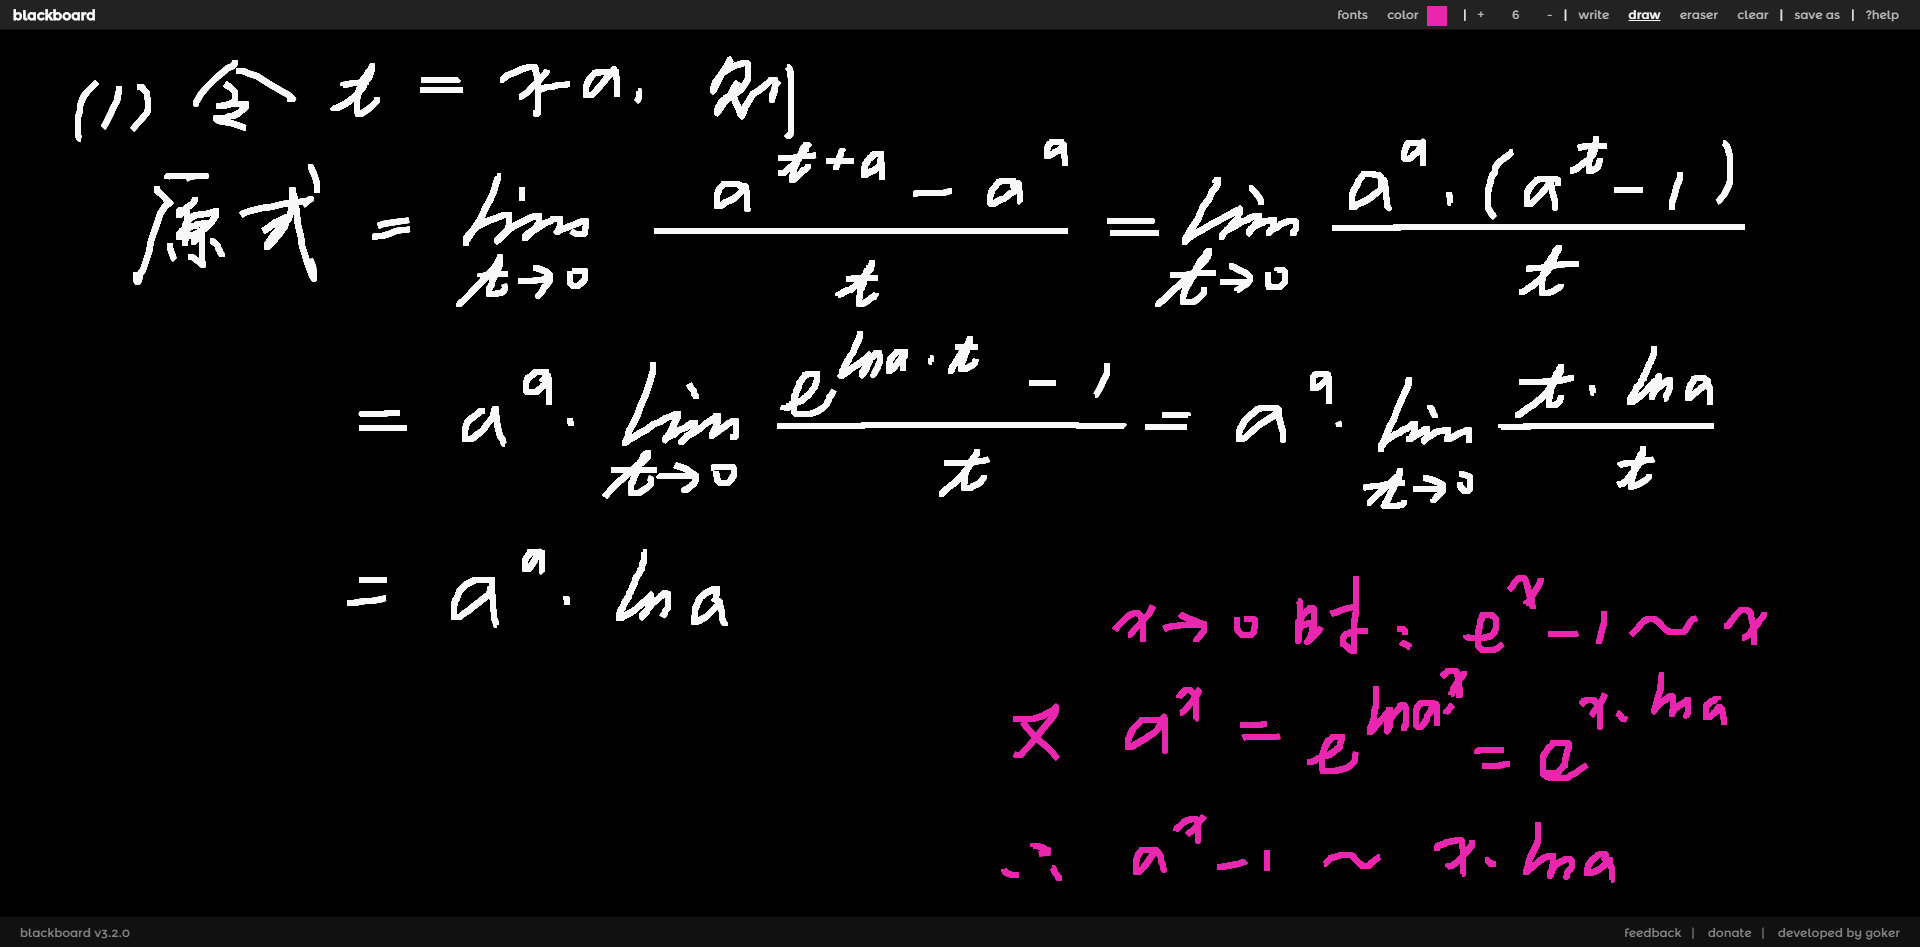 blackboard fonts color | + 6 - | write draw eraser clear | save as | ?help
(1) 令 t = x-a, 则
原式 = lim_{t→0} \frac{a^{t+a} - a^a}{t} = lim_{t→0} \frac{a^a · (a^t - 1)}{t}
= a^a · lim_{t→0} \frac{e^{lna·t} - 1}{t} = a^a · lim_{t→0} \frac{t · lna}{t}
= a^a · lna
x→0时: e^x - 1 ~ x
又 a^x = e^{lna^x} = e^{x·lna}
∴ a^x - 1 ~ x·lna
blackboard v3.2.0 feedback | donate | developed by goker